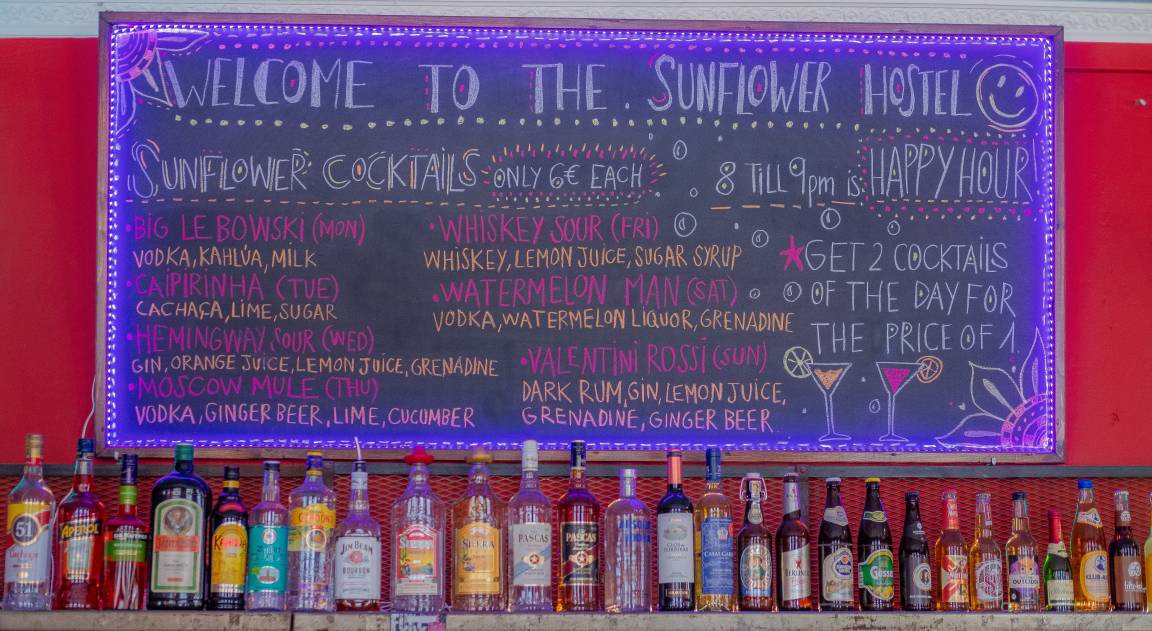 WELCOME TO THE . SUNFLOWER HOSTEL
SUNFLOWER COCKTAILS ONLY 6€ EACH
8 Till 9pm is: HAPPY HOUR
• BIG LE BOWSKI (MON)
VODKA, KAHLÚA, MILK
• CAIPIRINHA (TUE)
CACHAÇA, LIME, SUGAR
• HEMINGWAY SOUR (WED)
GIN, ORANGE JUICE, LEMON JUICE, GRENADINE
• MOSCOW MULE (THU)
VODKA, GINGER BEER, LIME, CUCUMBER
• WHISKEY SOUR (FRI)
WHISKEY, LEMON JUICE, SUGAR SYRUP
• WATERMELON MAN (SAT)
VODKA, WATERMELON LIQUOR, GRENADINE
• VALENTINI ROSSI (SUN)
DARK RUM, GIN, LEMON JUICE,
GRENADINE, GINGER BEER
GET 2 COCKTAILS
OF THE DAY FOR
THE PRICE OF 1.
51
APEROL
JIM BEAM
BOURBON
SIERRA
PASCAS
PASCAS
ABSOLUT
VODKA
Gösser